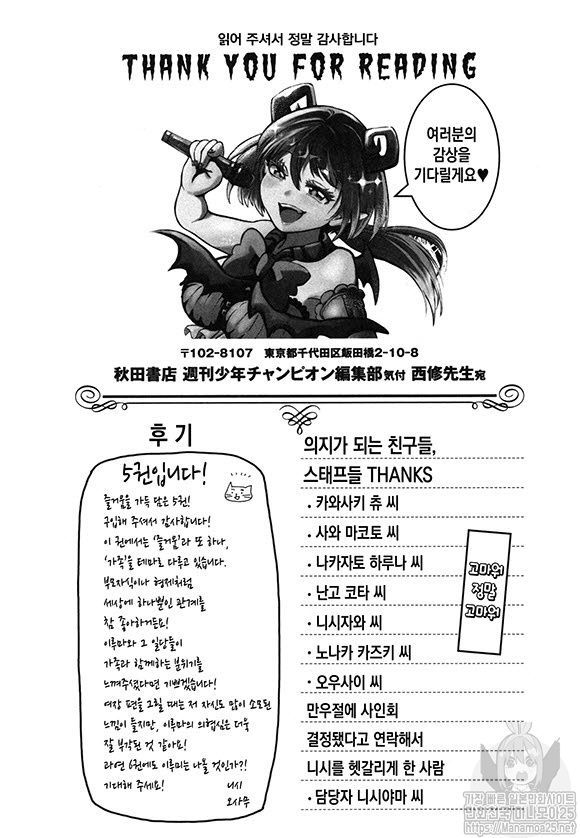 읽어 주셔서 정말 감사합니다
THANK YOU FOR READING
여러분의
감상을
기다릴게요♥
〒102-8107 東京都千代田区飯田橋2-10-8
秋田書店 週刊少年チャンピオン編集部気付 西修先生宛
후기
5권입니다!
즐거움을 가득 담은 5권!
구입해 주셔서 감사합니다!
이 권에서는 '즐거움'과 또 하나,
'가족'을 테마로 다루고 있습니다.
부모자식이나 형제처럼
세상에 하나뿐인 관계를
참 좋아하거든요!
이루마와 그 일당들이
가족과 함께하는 분위기를
느껴주셨다면 기쁘겠습니다!
여장 편을 그릴 때는 저 자신도 많이 소모된
느낌이 들지만, 이루마의 의협심은 더욱
잘 부각된 것 같아요!
과연 6권에도 이루미는 나올 것인가?!
기대해 주세요!
니시
오사무
의지가 되는 친구들,
스태프들 THANKS
・카와사키 츄 씨
・사와 마코토 씨
・나카자토 하루나 씨
・난고 코타 씨
・니시자와 씨
・노나카 카즈키 씨
・오우사이 씨
만우절에 사인회
결정됐다고 연락해서
니시를 헷갈리게 한 사람
・담당자 니시야마 씨
고마워!
정말
고마워!
가장 빠른 일본만화사이트
만화천국 마나모아25
https://Manamoa25.net